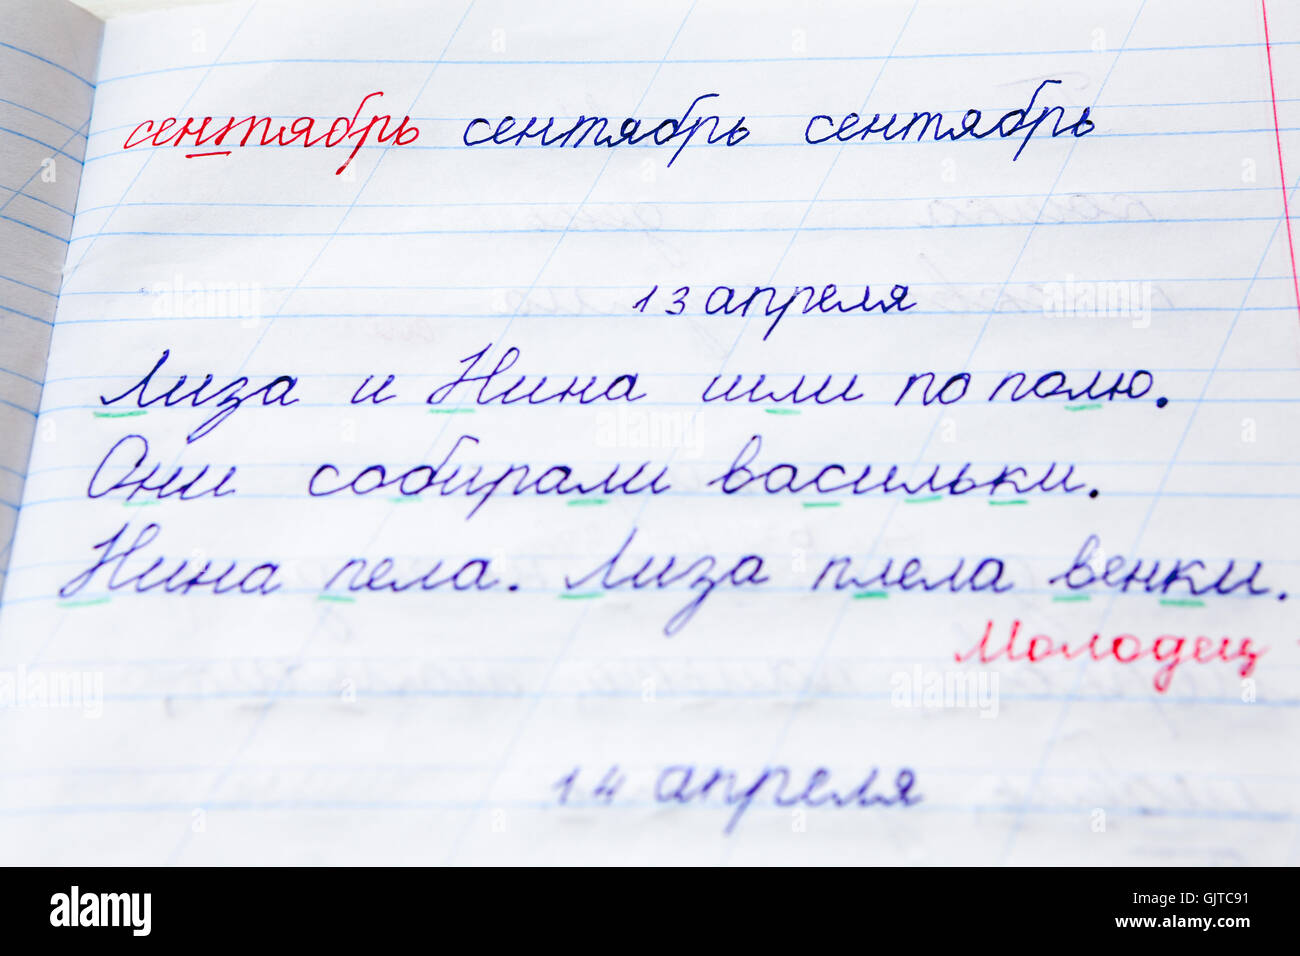 сентябрь сентябрь сентябрь
13 апреля
Лиза и Нина шли по полю.
Они собирали васильки.
Нина пела. Лиза плела венки.
Молодец
14 апреля
alamy
Image ID: GJTC91
www.alamy.com